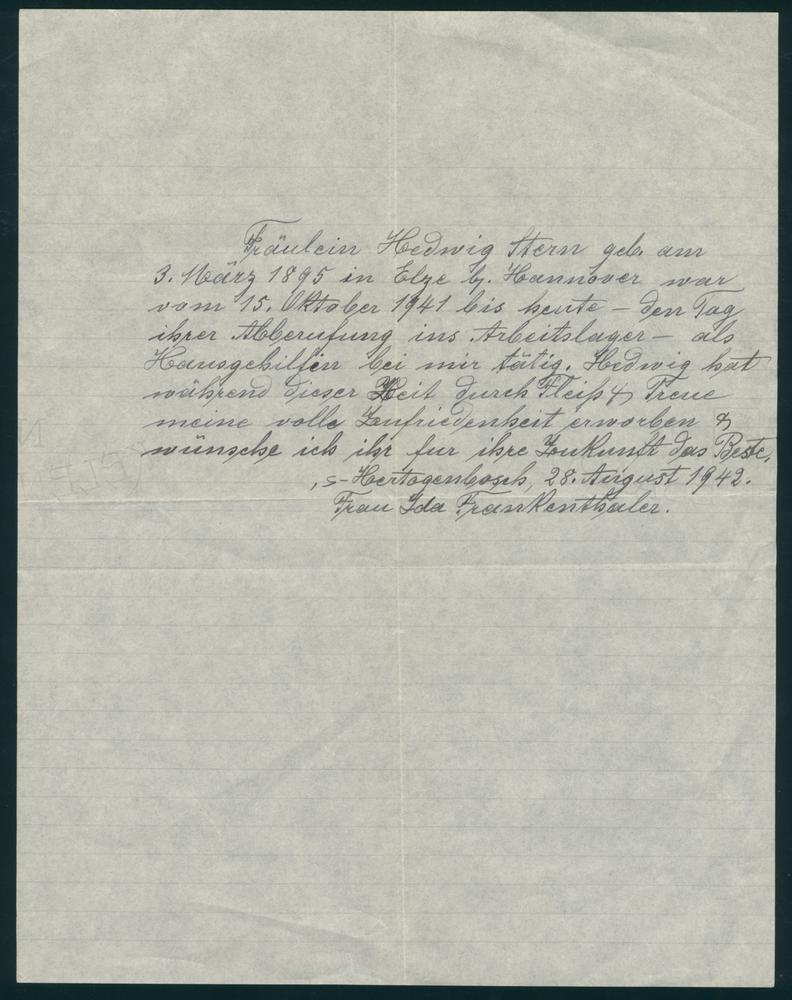 Fräulein Hedwig Stern geb. am
3. März 1895 in Elze b. Hannover war
vom 15. Oktober 1941 bis heute – den Tag
ihrer Abberufung ins Arbeitslager – als
Hausgehilfin bei mir tätig. Hedwig hat
während dieser Zeit durch Fleiß & Treue
meine volle Zufriedenheit erworben &
wünsche ich ihr fur ihre Zukunft das Beste.
's-Hertogenbosch, 28. August 1942.
Frau Ida Frankenthaler.